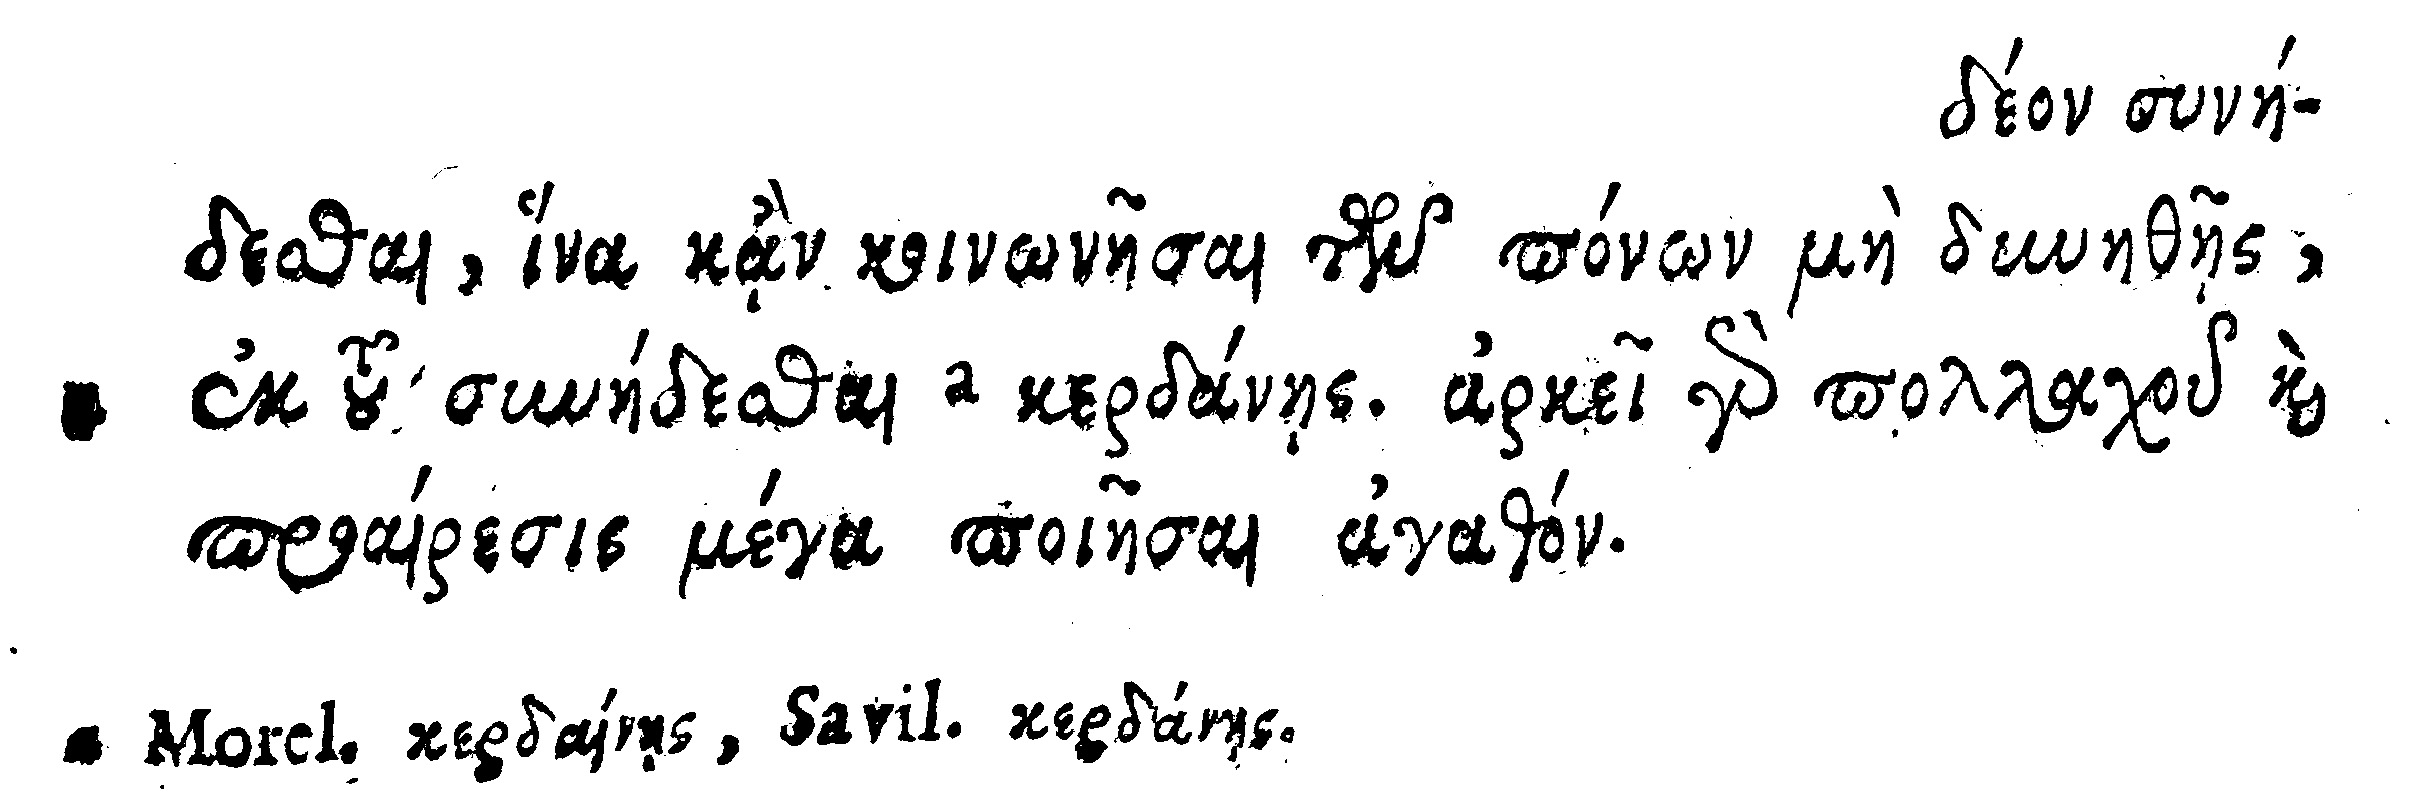 δέον συνή-
δεσθαι, ἵνα κᾂν κοινωνῆσαι τῶν πόνων μὴ δυνηθῇς,
ἐκ τοῦ συνήδεσθαι a κερδάνῃς. ἀρκεῖ γὰρ πολλαχοῦ καὶ
προαίρεσις μέγα ποιῆσαι ἀγαθόν.
a Morel. κερδαίνῃς, Savil. κερδάνῃς.